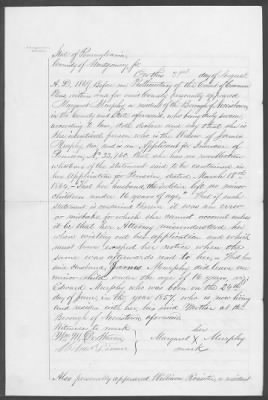 State of Pennsylvania,
County of Montgomery, ss
On this 23rd day of August
A.D. 1869 Before me Prothonotary of the Court of Common
Pleas within and for said County personally appeared
Margaret Murphy a resident of the Borough of Norristown
in the County and State aforesaid, who being duly sworn
according to law, doth declare and say that she is
the identical person who is the Widow of James
Murphy dec. and is an Applicant for Increase of
Pension, No. 22,160. That she has no recollection
whatever of the statement said to be contained in
her Application for Pension, dated March 18th
1864, "That her husband, the soldier, left no minor
children under 16 years of age," That if such
statement is contained therein it was an error
or mistake for which she cannot account unless
it be that her Attorney misunderstood her
when making out her application and which
must have escaped her notice when the
same was afterwards read to her, That her
said husband, James Murphy did leave one
minor child under the age of 16 years, viz:
Edward Murphy who was born on the 24th
day of June, in the year 1857, who is now living
and resides with her, his said Mother at the
Borough of Norristown aforesaid
Witnesses to mark
her
Margaret X Murphy
mark
Also personally appeared William Rossiter, a resident